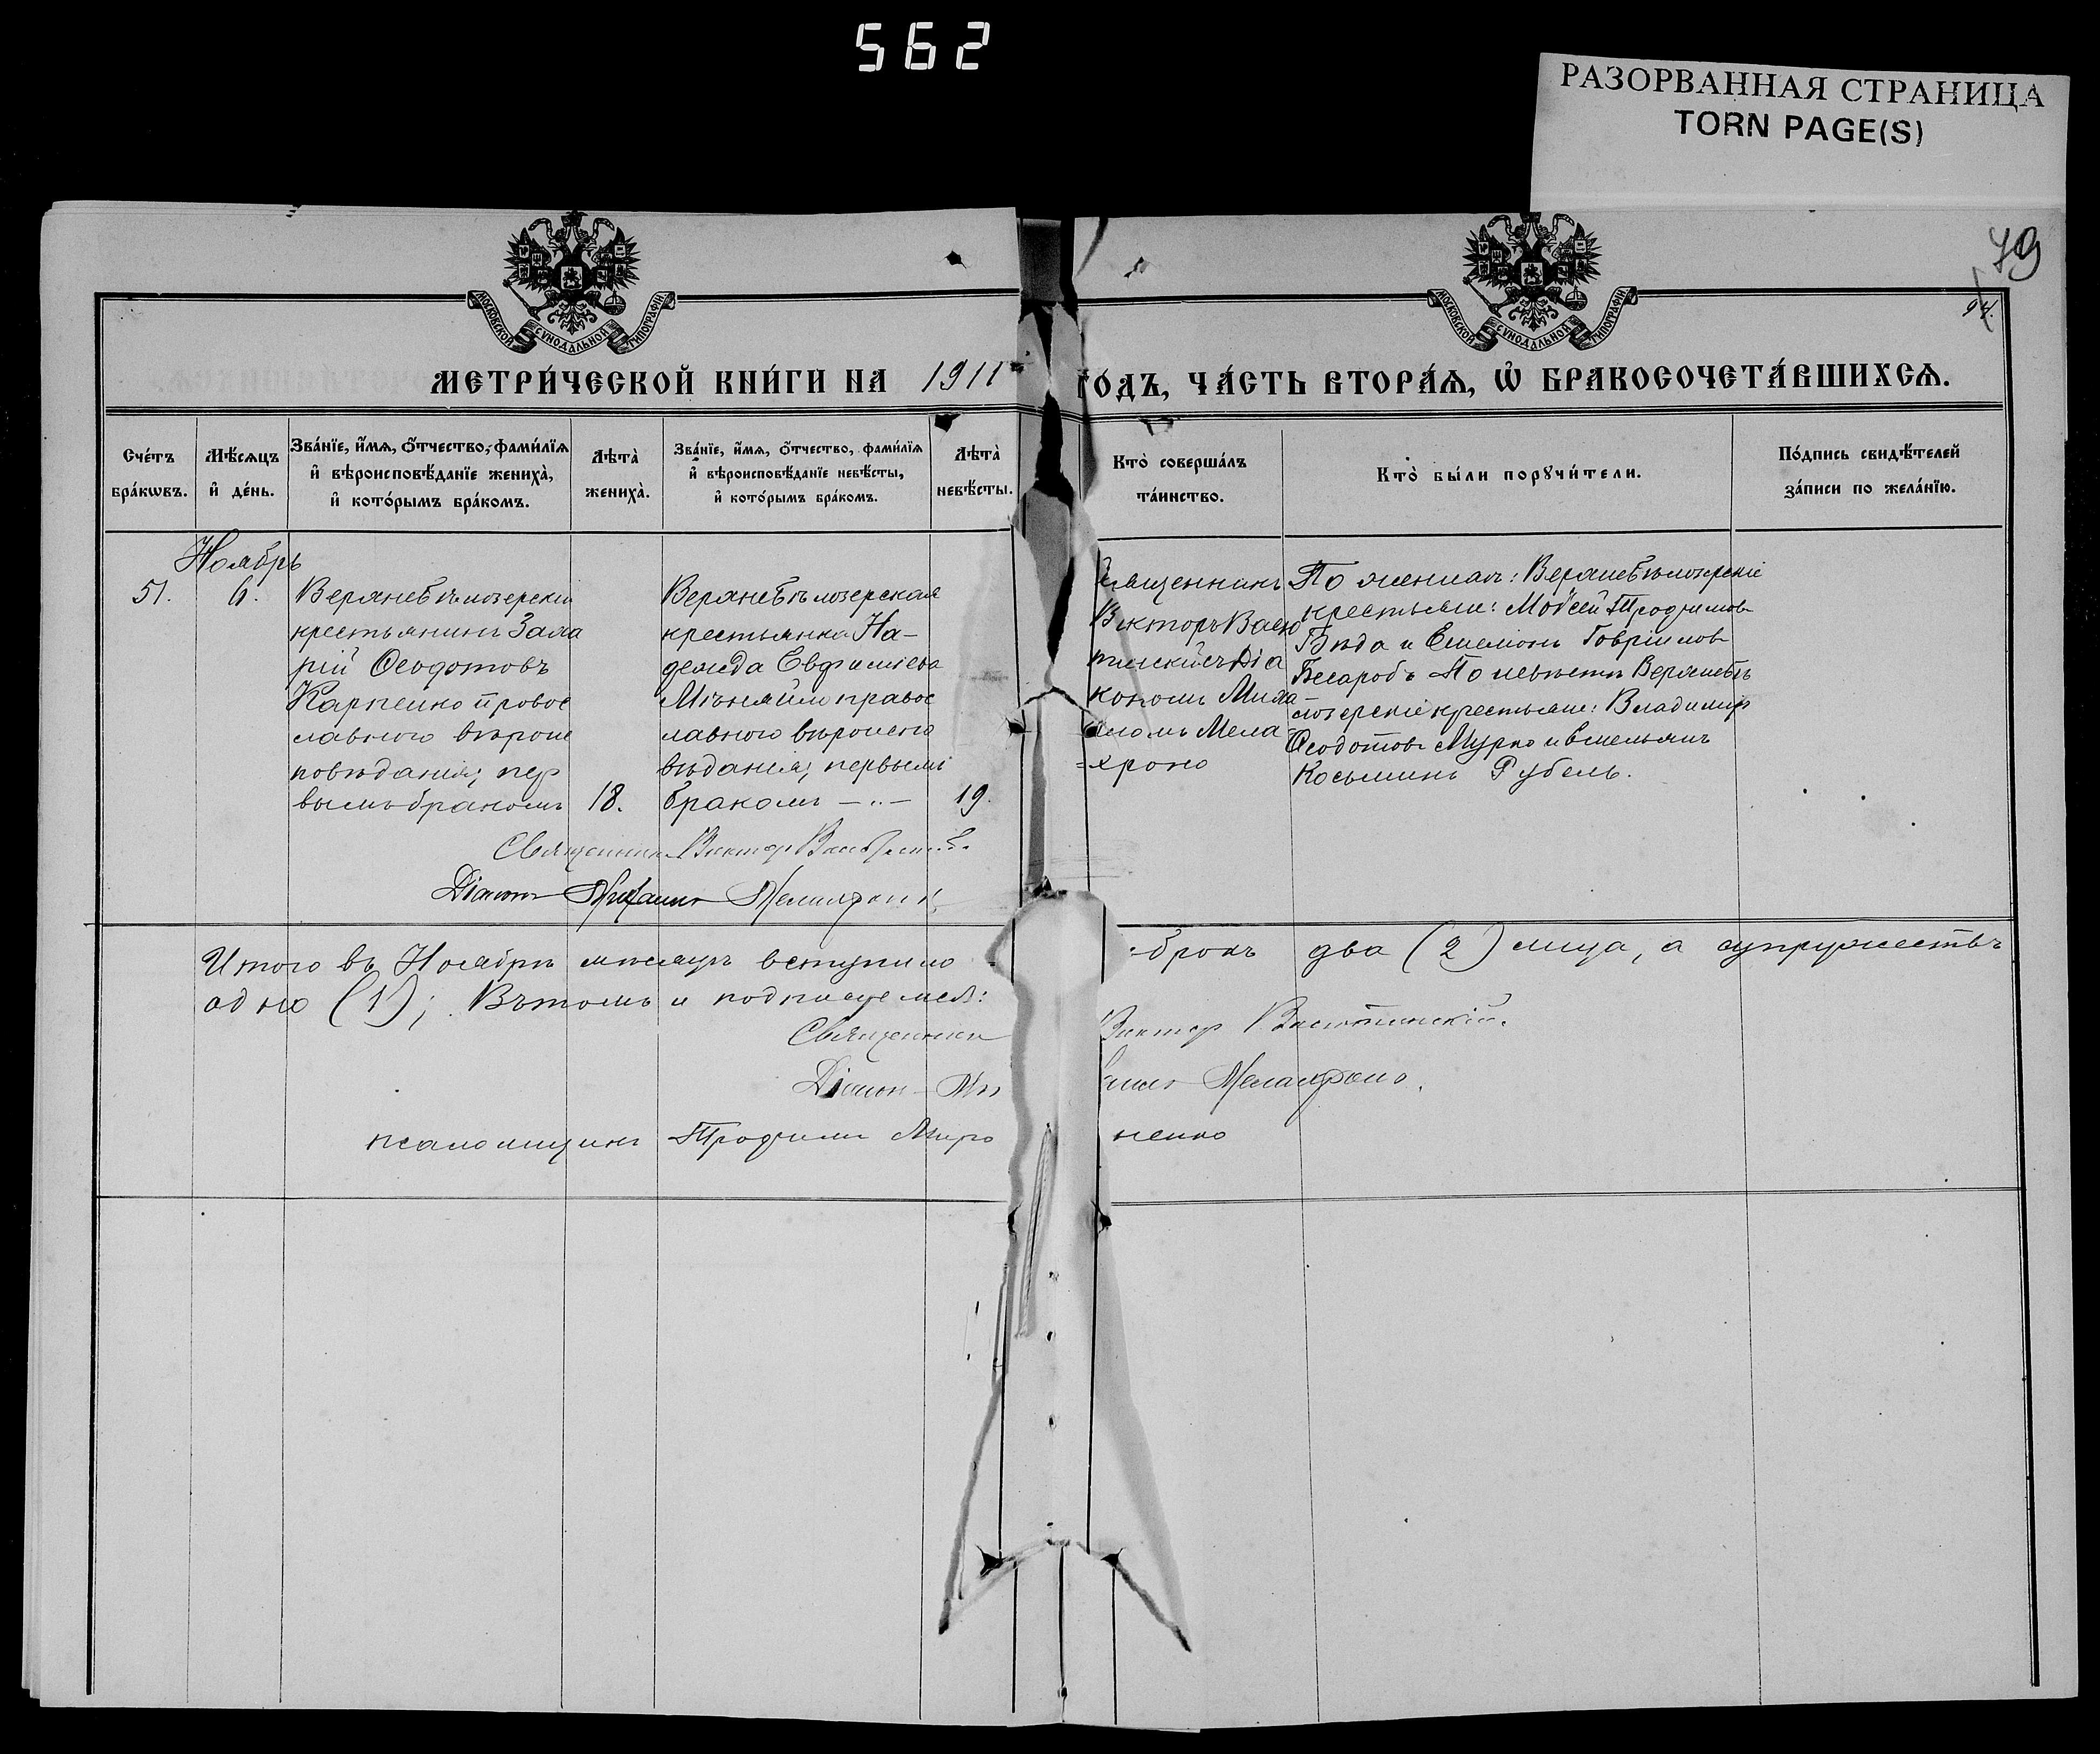 562
РАЗОРВАННАЯ СТРАНИЦА
TORN PAGE(S)
79
94.
МОСКОВСКОЙ СѴНОДАЛЬНОЙ ТИПОГРАФІИ
МОСКОВСКОЙ СѴНОДАЛЬНОЙ ТИПОГРАФІИ
МЕТРИ́ЧЕСКОЙ КНИ́ГИ НА 1911 ГО́ДЪ, ЧА́СТЬ ВТОРА́Ѧ, Ѡ҆ БРАКОСОЧЕТА́ВШИХСѦ.
Сче́тъ
бра́кѡвъ.
Мѣ́сѧцъ
и҆ де́нь.
Зва́нїе, и҆́мѧ, ѻ҆́тчество, фами́лїѧ
и҆ вѣроисповѣ́данїе жениха̀,
и҆ кото́рымъ бра́комъ.
Лѣта̀
жениха̀.
Зва́нїе, и҆́мѧ, ѻ҆́тчество, фами́лїѧ
и҆ вѣроисповѣ́данїе невѣ́сты,
и҆ кото́рымъ бра́комъ.
Лѣта̀
невѣ́сты.
Кто̀ соверша́лъ
та́инство.
Кто̀ бы́ли порꙋчи́тели.
По́дпись свидѣ́телей
за́писи по жела́нїю.
Ноябрь
51.
6.
Верхнебѣлозерскій
крестьянинъ Заха
рій Ѳеодотовъ
Карпенко правос
лавного вѣроис
повѣданія; пер
вымъ бракомъ
18.
Верхнебѣлозерская
крестьянка На-
дежда Евфиміева
православного вѣроиспо
вѣданія; первымъ
бракомъ — „ —
19.
Священникъ
Викторъ
съ Діа
кономъ Миха
иломъ Мела
=хроно
По женихѣ: Верхнебѣлозерскіе
крестьяне: Мойсей Трофимов
Бѣда и Симеонъ Гавріилов
Бесаробъ По невѣстѣ Верхнебѣ
лозерскіе крестьяне: Владимір
Ѳеодотов Мурко и Емельянъ
Косьминъ Рубель.
Священникъ Виктор
Діаконъ Михаилъ Мелахроно
Итого въ Ноябрѣ мѣсяцѣ вступило бракъ два (2) лица, а супружествъ
одно (1); Вътомъ и подписуемся:
Священник Виктор
Діаконъ Ми аилъ Мелахроно.
псаломщикъ Трофимъ Миро ненко